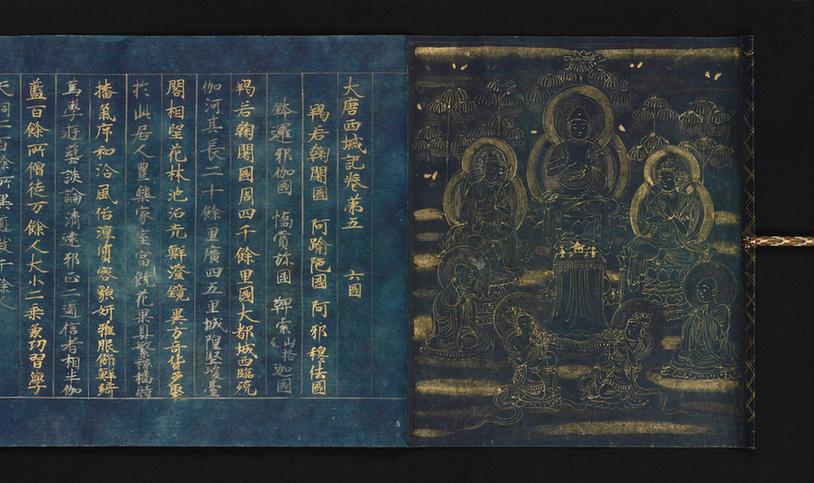 大唐西域記卷苐五　六國
羯若鞠闍國　阿踰陁國　阿邪穆佉國
鉢邏邪伽國　憍賞弥國　鞞索山格反迦國
羯若鞠闍國周四千餘里國大都城西臨殑
伽河其長二十餘里廣四五里城隍堅峻臺
閣相望花林池沼光鮮澄鏡異方奇貨多聚
於此居人豐樂家室富饒花果具繁稼穡時
播氣序和洽風俗淳質容貌妍雅服飾鮮綺
篤學遊藝談論清遠邪正二道信者相半伽
藍百餘所僧徒万餘人大小二乘兼功習學
天祠二百餘所異道數千餘人